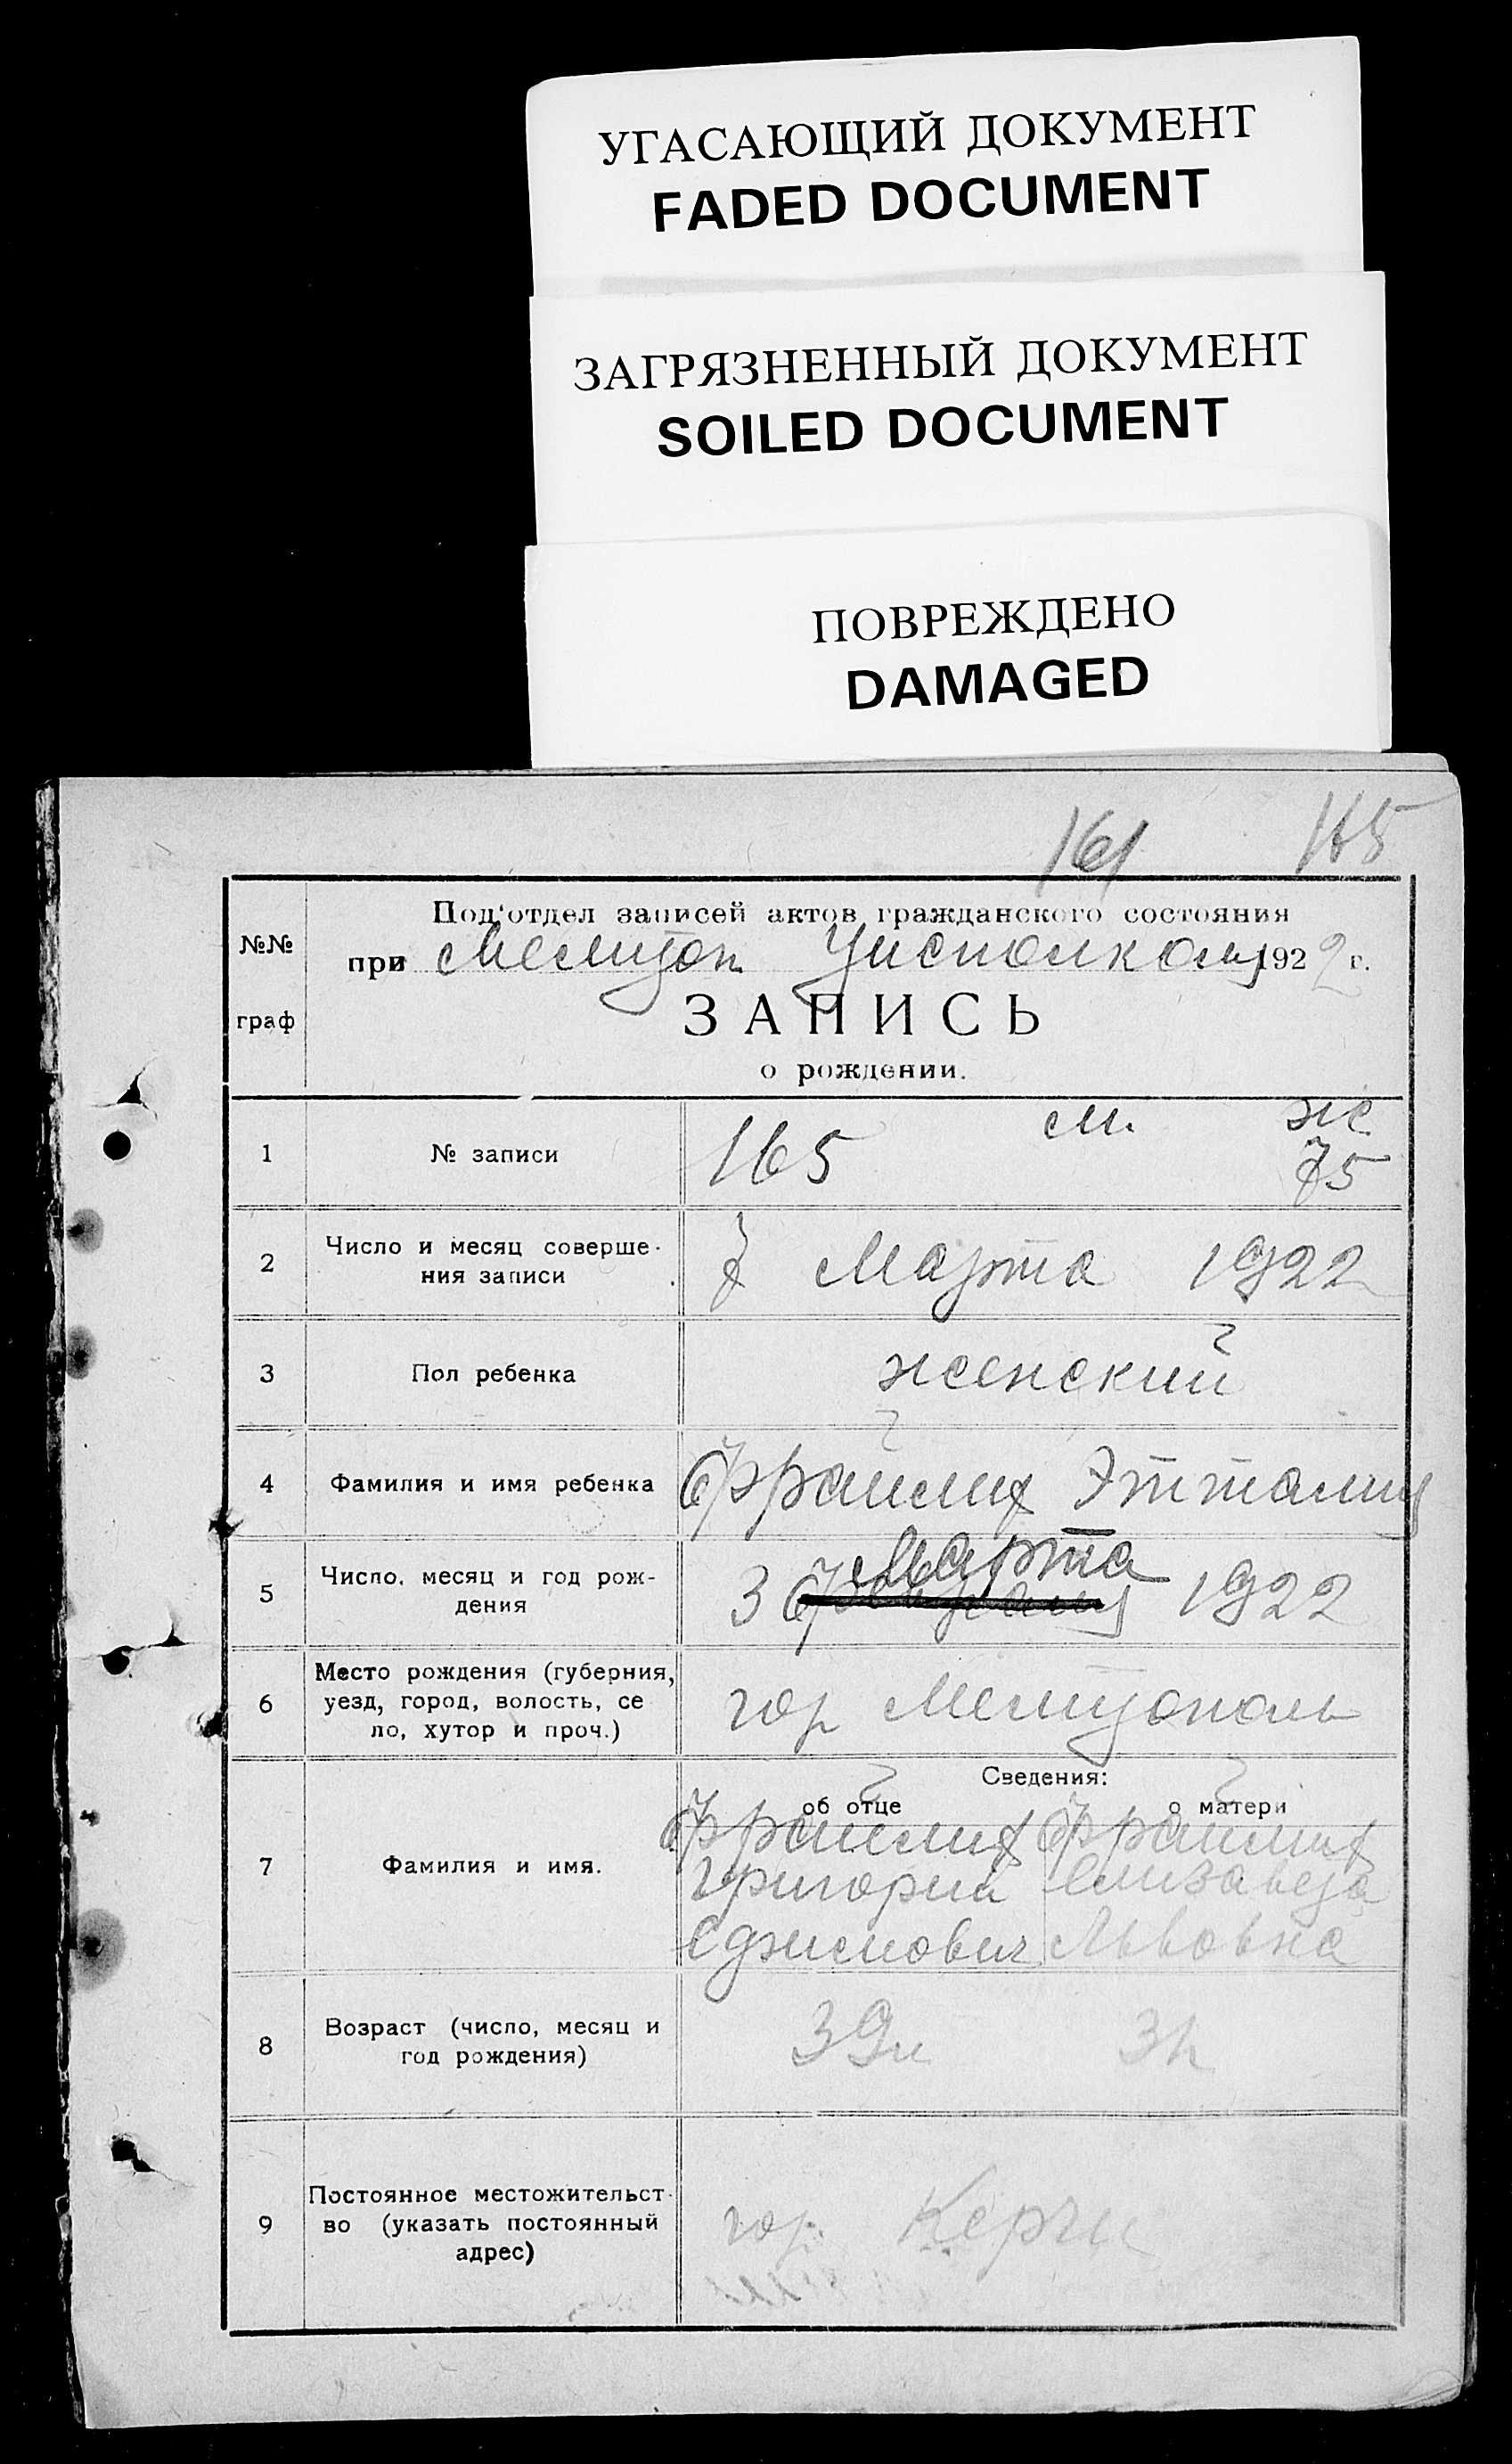 УГАСАЮЩИЙ ДОКУМЕНТ
FADED DOCUMENT
ЗАГРЯЗНЕННЫЙ ДОКУМЕНТ
SOILED DOCUMENT
ПОВРЕЖДЕНО
DAMAGED
161 165
№№ граф
Под'отдел записей актов гражданского состояния
при Мелитоп Уисполкому 1922 г.
ЗАПИСЬ
о рождении.
м. ж.
1 № записи 165 75
2 Число и месяц соверше-
ния записи
7 Марта 1922
3 Пол ребенка женский
4 Фамилия и имя ребенка Фрайлих
5 Число, месяц и год рож-
дения
3 Марта 1922
6 Место рождения (губерния,
уезд, город, волость, се
ло, хутор и проч.)
гор Мелитополь
Сведения:
об отце о матери
7 Фамилия и имя.
Фрайлих Фрайлих
Григорий Елизавета
Львовна
8 Возраст (число, месяц и
год рождения)
39 л
9 Постоянное местожительст-
во (указать постоянный
адрес)
гор. Керчь